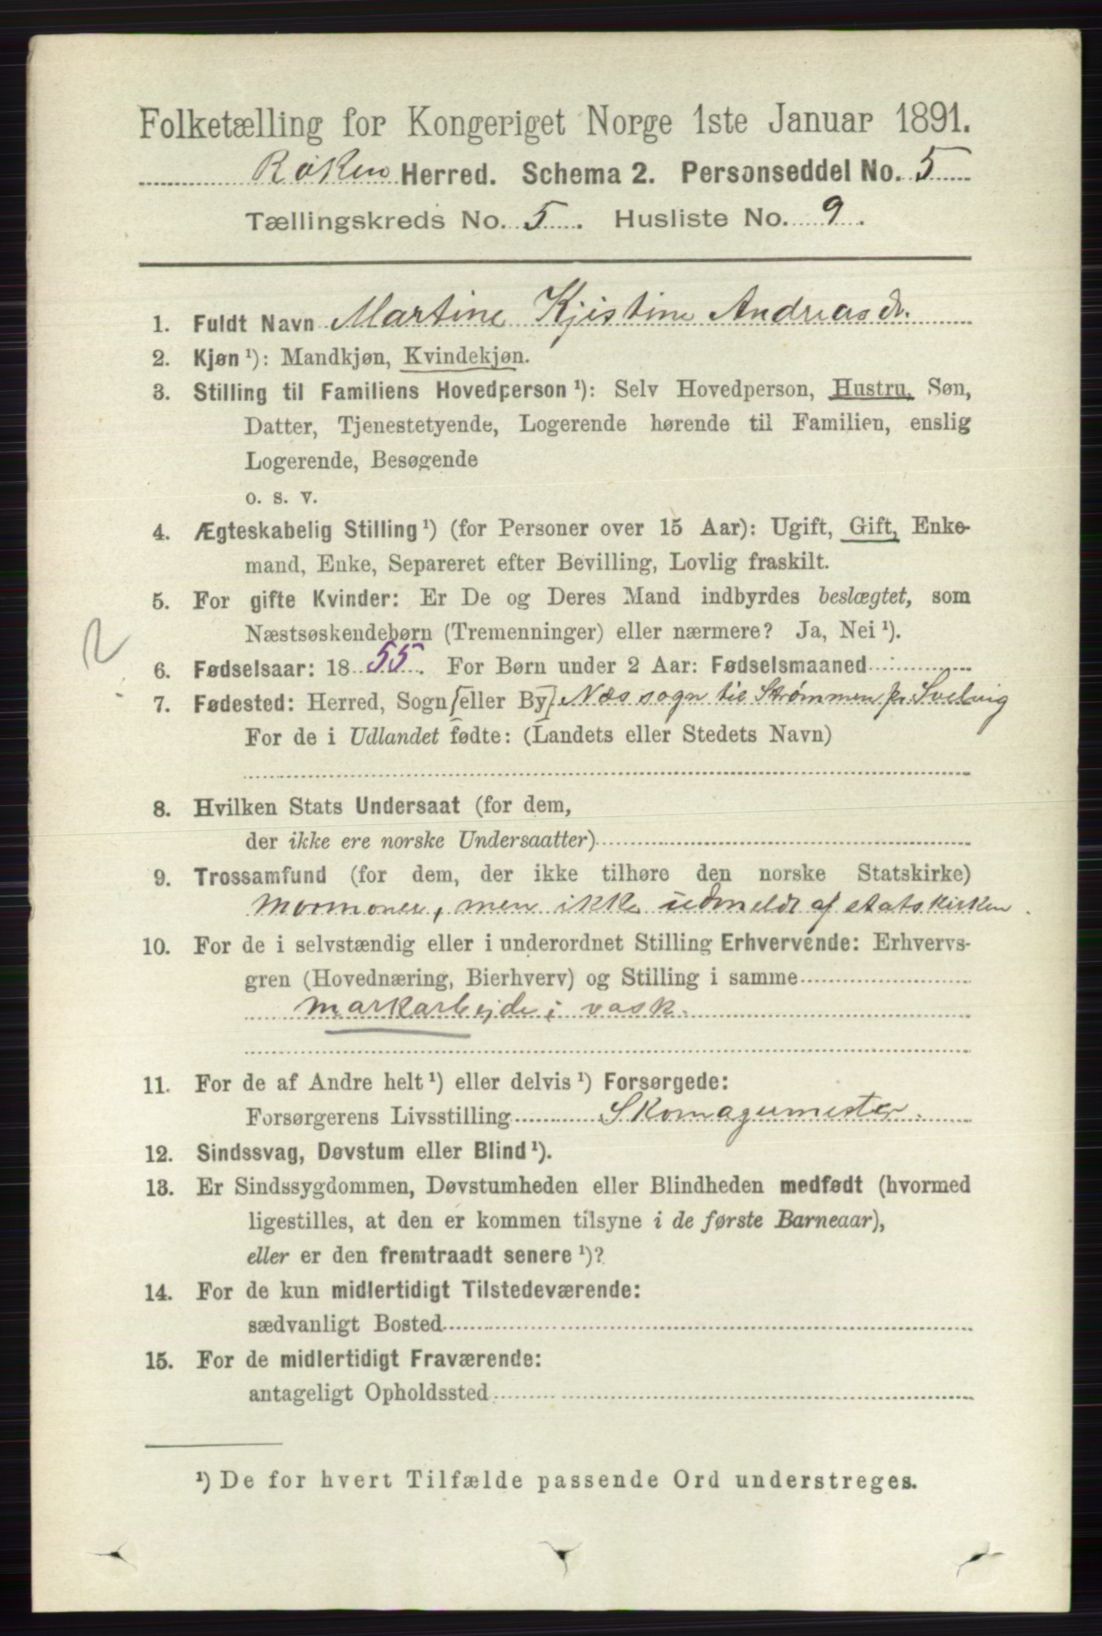 Folketælling for Kongeriget Norge 1ste Januar 1891.
Røken Herred. Schema 2. Personseddel No. 5
Tællingskreds No. 5. Husliste No. 9.
1. Fuldt Navn Martine Kjistine Andreasdr.
2. Kjøn ¹): Mandkjøn, Kvindekjøn.
3. Stilling til Familiens Hovedperson ¹): Selv Hovedperson, Hustru, Søn,
Datter, Tjenestetyende, Logerende hørende til Familien, enslig
Logerende, Besøgende
o. s. v.
4. Ægteskabelig Stilling ¹) (for Personer over 15 Aar): Ugift, Gift, Enke-
mand, Enke, Separeret efter Bevilling, Lovlig fraskilt.
5. For gifte Kvinder: Er De og Deres Mand indbyrdes beslægtet, som
Næstsøskendebørn (Tremenninger) eller nærmere? Ja, Nei ¹).
2
6. Fødselsaar: 18 55. For Børn under 2 Aar: Fødselsmaaned
7. Fødested: Herred, Sogn [eller By] Næs sogn til Strømmen pr Svelvig
For de i Udlandet fødte: (Landets eller Stedets Navn)
8. Hvilken Stats Undersaat (for dem,
der ikke ere norske Undersaatter)
9. Trossamfund (for dem, der ikke tilhøre den norske Statskirke)
mormoner, men ikke udmeldt af statskirken.
10. For de i selvstændig eller i underordnet Stilling Erhvervende: Erhvervs-
gren (Hovednæring, Bierhverv) og Stilling i samme
markarbejde i vask.
11. For de af Andre helt ¹) eller delvis ¹) Forsørgede:
Forsørgerens Livsstilling Skomagermester.
12. Sindssvag, Døvstum eller Blind ¹).
13. Er Sindssygdommen, Døvstumheden eller Blindheden medfødt (hvormed
ligestilles, at den er kommen tilsyne i de første Barneaar),
eller er den fremtraadt senere ¹)?
14. For de kun midlertidigt Tilstedeværende:
sædvanligt Bosted
15. For de midlertidigt Fraværende:
antageligt Opholdssted
¹) De for hvert Tilfælde passende Ord understreges.